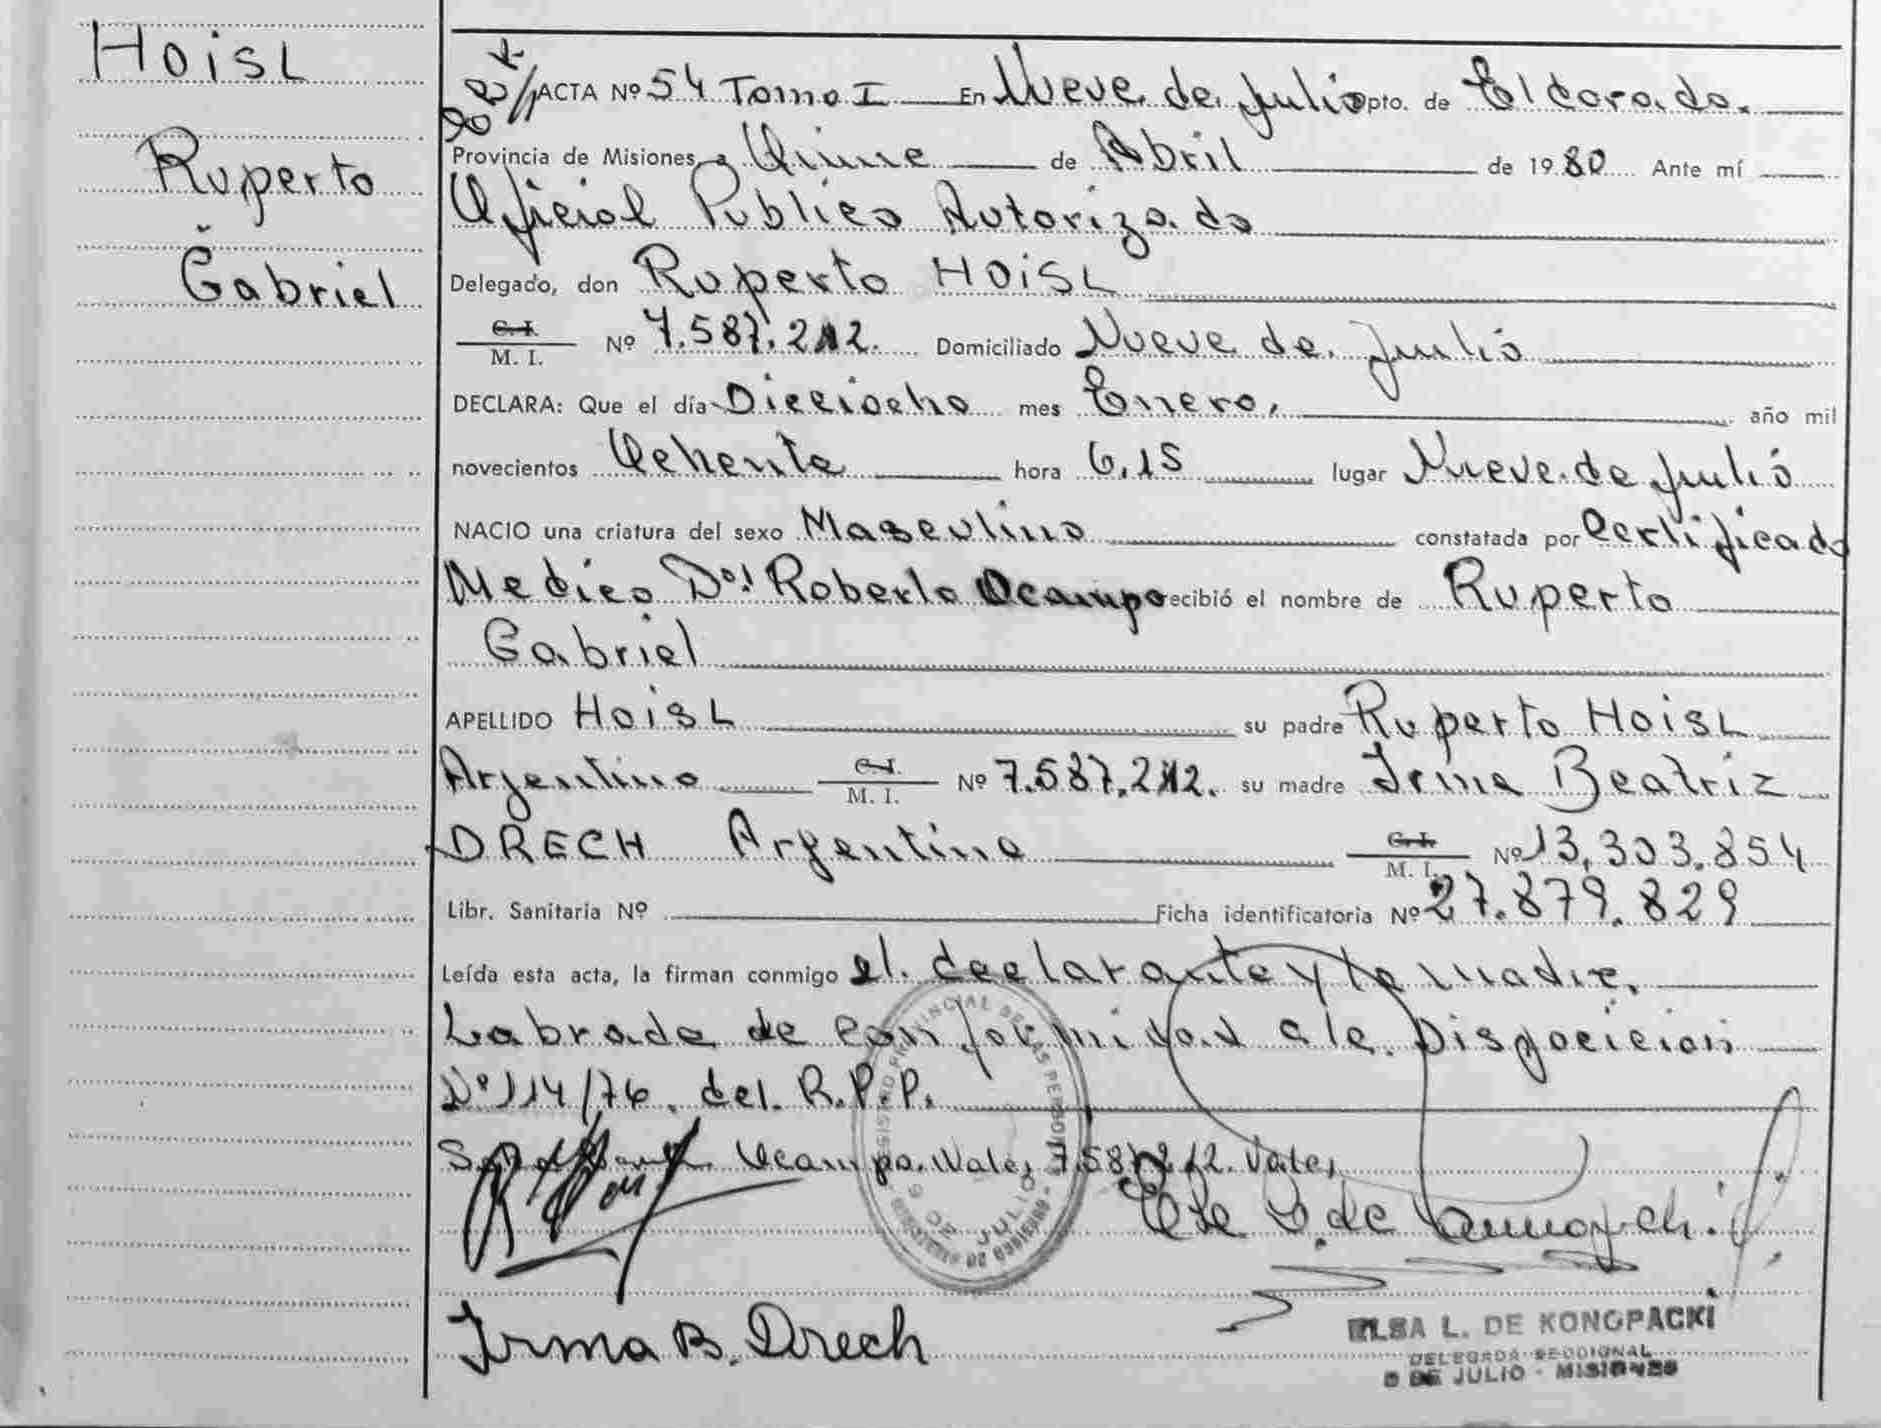 HOISL
Ruperto
Gabriel
ACTA Nº 54 Tomo I En Nueve de Julio Dpto. de Eldorado.
Provincia de Misiones, a Quince de Abril de 1980 Ante mí
Oficial Publico Autorizado
Delegado, don Ruperto HOISL
C. I.
M. I. Nº 7.587.212. Domiciliado Nueve de Julio
DECLARA: Que el día Dieciocho mes Enero, año mil
novecientos Ochenta hora 6,15 lugar Nueve de Julio
NACIO una criatura del sexo Masculino constatada por Certificado
Medico Dr. Roberto Ocampo recibió el nombre de Ruperto
Gabriel
APELLIDO HOISL su padre Ruperto HOISL
Argentino C. I.
M. I. Nº 7.587.212. su madre Irma Beatriz
DRECH Argentina C. I.
M. I. Nº 13,303.854
Libr. Sanitaria Nº Ficha identificatoria Nº 27.879.829
Leída esta acta, la firman conmigo el declarante y la madre.
Labrada de conformidad a la Disposicion
Nº 114/76. del. R.P.P.
Ocampo. Vale, 7.587.212. Vale,
REGISTRO PROVINCIAL DE LAS PERSONAS
9 DE JULIO
Irma B. Drech
ELSA L. DE KONOPACKI
DELEGADA SECCIONAL
9 DE JULIO - MISIONES